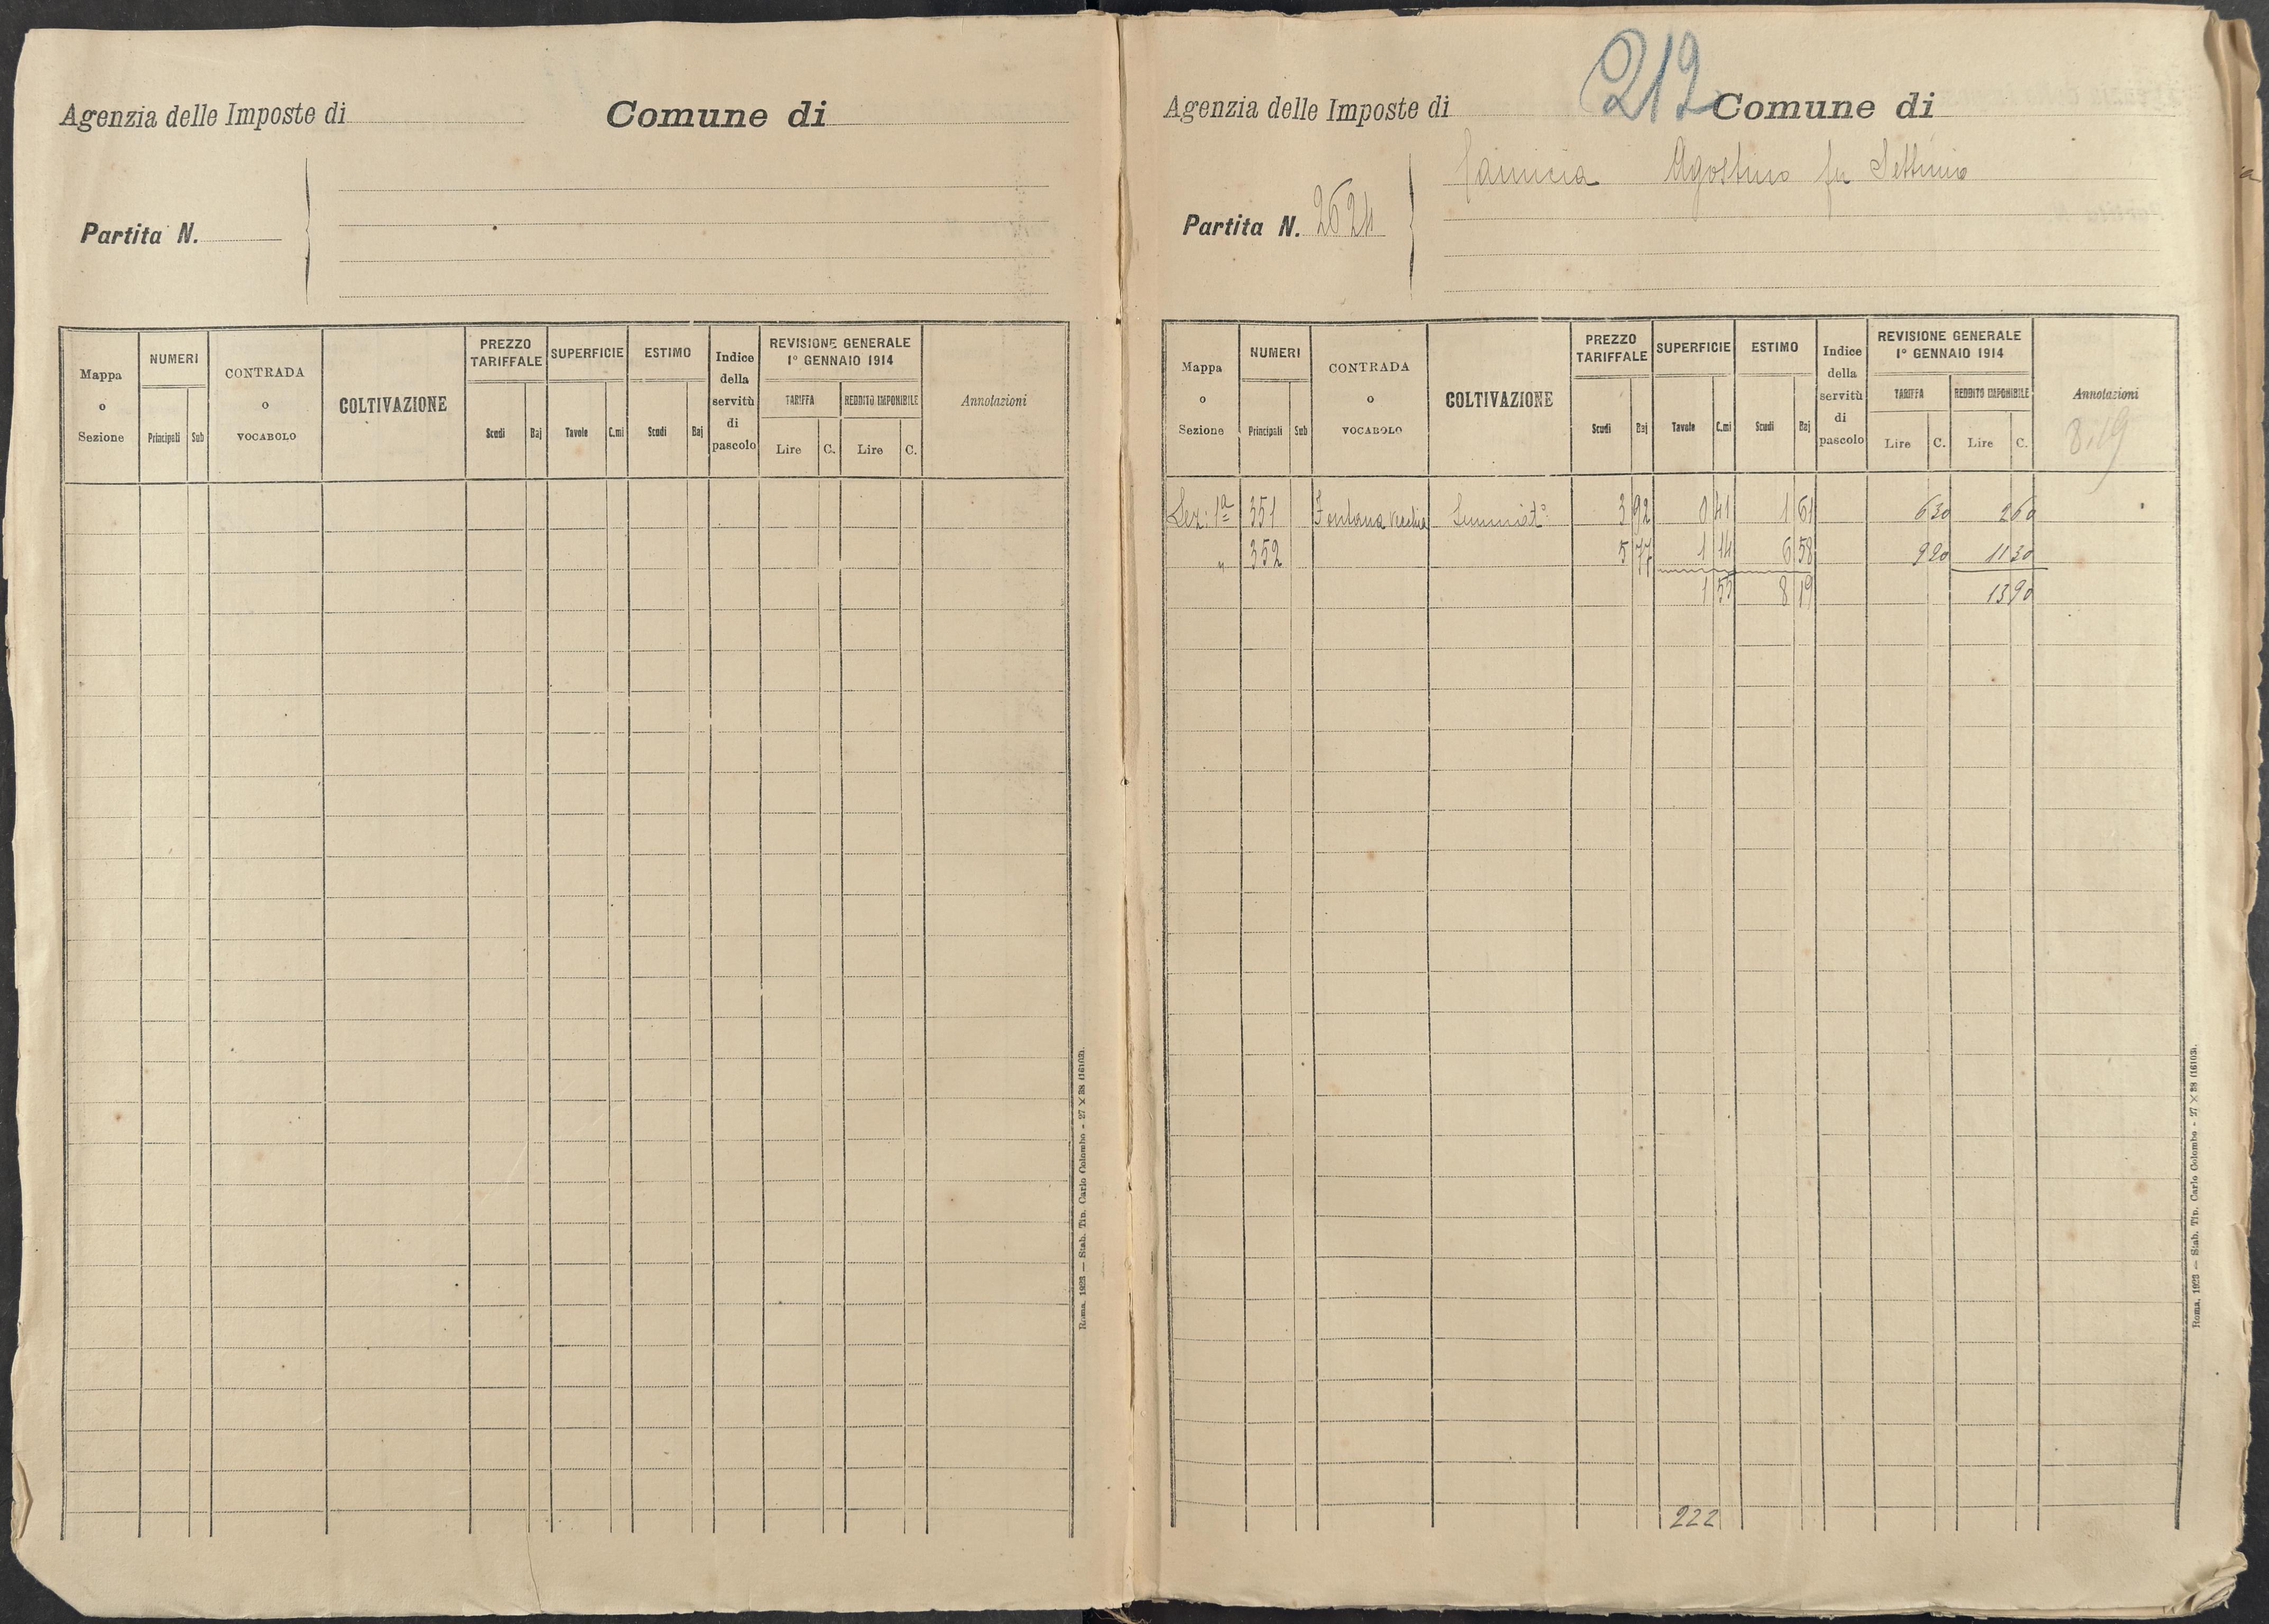 Agenzia delle Imposte di Comune di
Partita N.
Mappa o Sezione
NUMERI
Principali Sub
CONTRADA o VOCABOLO
COLTIVAZIONE
PREZZO TARIFFALE
Scudi Baj
SUPERFICIE
Tavole C.mi
ESTIMO
Scudi Baj
Indice della servitù di pascolo
REVISIONE GENERALE
1° GENNAIO 1914
TARIFFA REDDITO IMPONIBILE
Lire C. Lire C.
Annotazioni
Roma, 1923 — Stab. Tip. Carlo Colombo - 27 × 38 (16103).
212
Agenzia delle Imposte di Comune di
Agostino fu Settimio
Partita N. 2624
Mappa o Sezione
NUMERI
Principali Sub
CONTRADA o VOCABOLO
COLTIVAZIONE
PREZZO TARIFFALE
Scudi Baj
SUPERFICIE
Tavole C.mi
ESTIMO
Scudi Baj
Indice della servitù di pascolo
REVISIONE GENERALE
1° GENNAIO 1914
TARIFFA REDDITO IMPONIBILE
Lire C. Lire C.
Annotazioni
8.19
Sez: 1ª 351 Fontana Vecchia 3 92 0 41 1 61 6 30 2 60
" 352 5 77 1 14 6 58 9 20 11 30
1 55 8 19 13 90
222
Roma, 1923 — Stab. Tip. Carlo Colombo - 27 × 38 (16103).